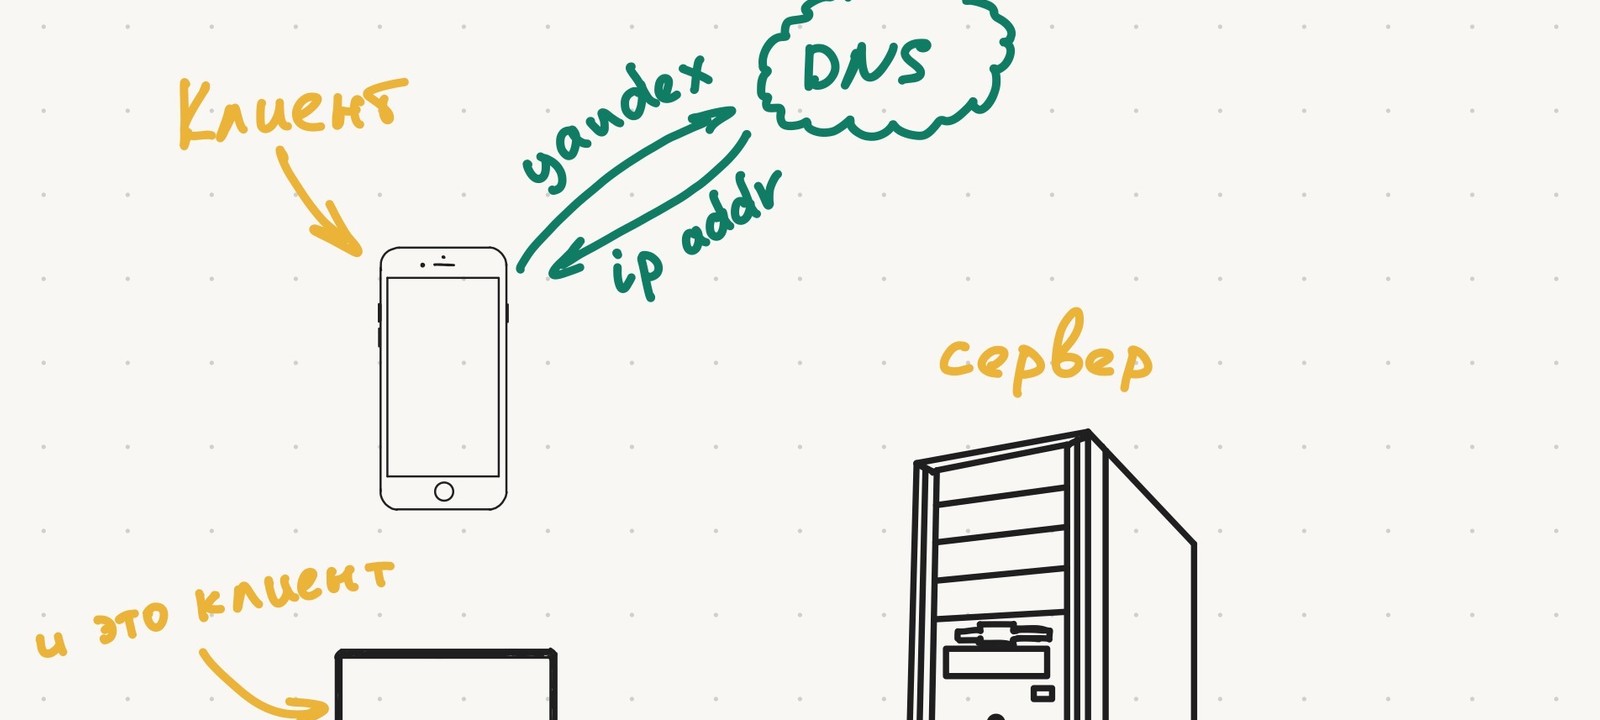 DNS
Клиент
yandex
ip addr
сервер
и это клиент